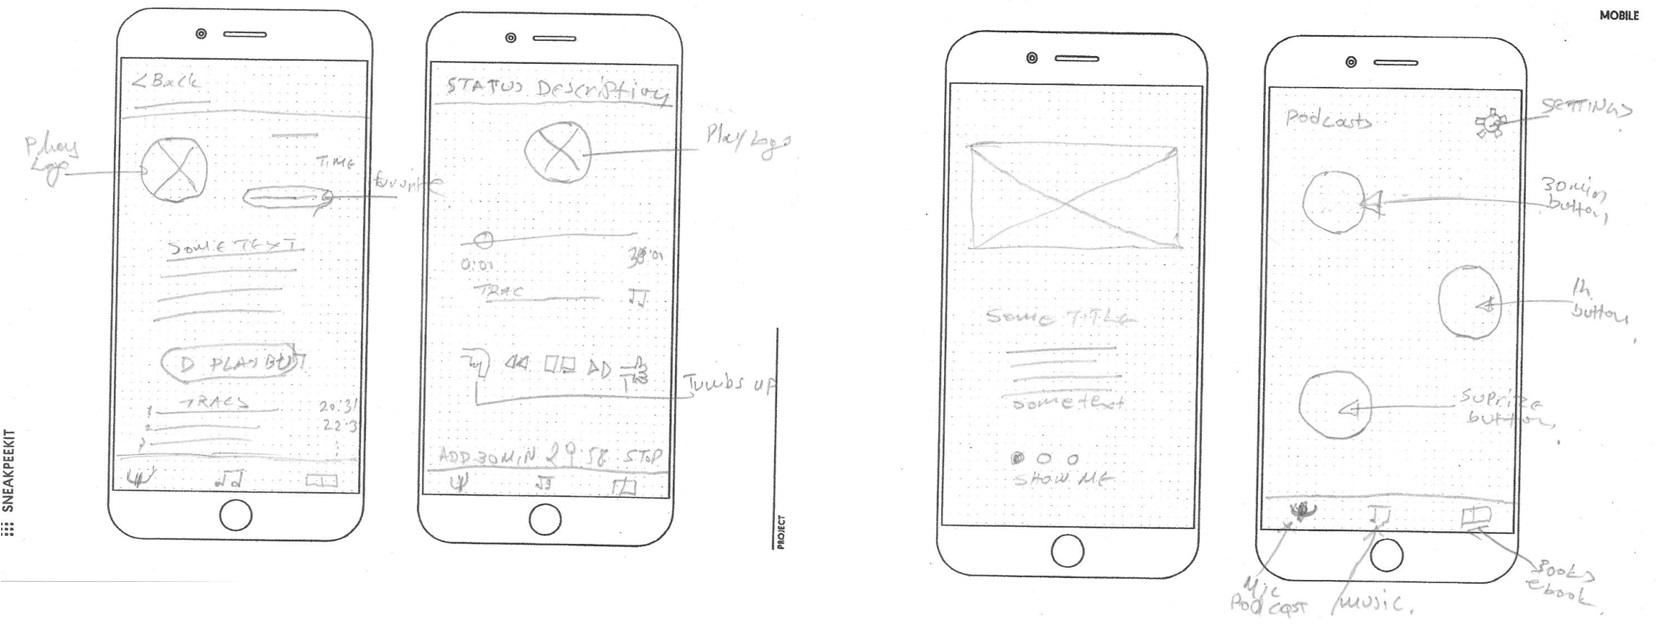 MOBILE
SNEAKPEEKIT
PROJECT
<Back
Play
Logo
TIME
favorite
SOME TEXT
D PLAY BUT
TRACS
1
2
20:31
22:3
STATUS Description
Play Logo
0:01
30:01
TRAC
Tumbs up
ADD 30MIN 29:58 STOP
SOME TITLE
some text
SHOW ME
Podcasts
SETTINGS
30min
button
1h
button
suprize
button
Mic
Podcast
music.
Books
ebook